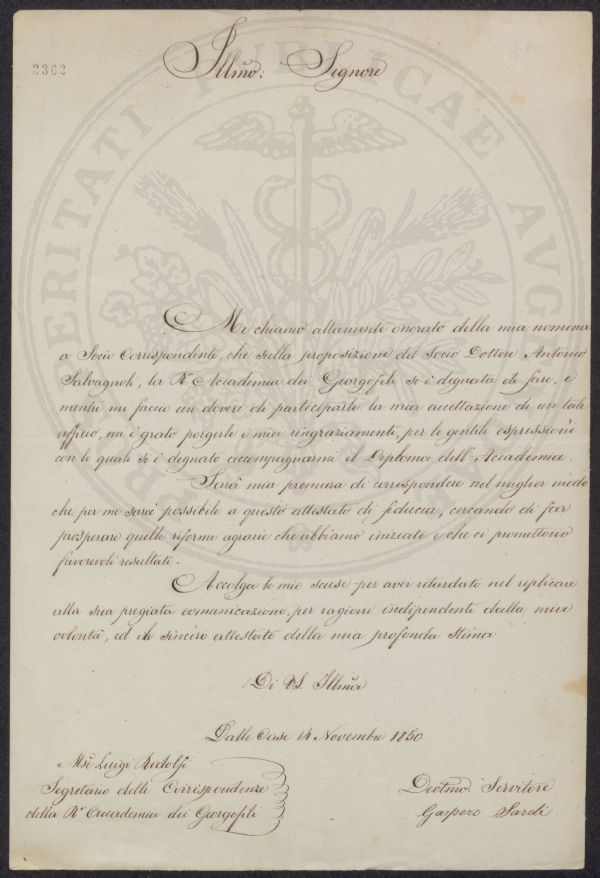 2362
Illmo: Signore
Mi chiamo altamente onorato della mia nomina
a Socio Corrispondente, che sulla proposizione del Socio Dottore Antonio
Salvagnoli, la Rª Accademia dei Georgofili si è degnata di fare, e
mentre mi faccio un dovere di parteciparle la mia accettazione di un tale
ufficio, mi è grato porgerle i miei ringraziamenti, per le gentili espressioni
con le quali si è degnato accompagnarmi il Diploma dell'Accademia.
Sarà mia premura di corrispondere nel miglior modo
che per me sarà possibile a questo attestato di fiducia, cercando di far
prosperare quelle riforme agrarie che abbiamo iniziate e che ci promettono
favorevoli resultati.
Accolga le mie scuse per aver ritardato nel replicare
alla sua pregiata comunicazione, per ragioni indipendenti dalla mia
volontà, ed il sincero attestato della mia profonda stima
Di VS. Illma
Dalle Case 14 Novembre 1850
Mse Luigi Ridolfi
Segretario delle Corrispondenze
della Rª Accademia dei Georgofili
Devotmo Servitore
Gaspero Sardi
PROSPERITATI PUBLICAE AUGENDAE